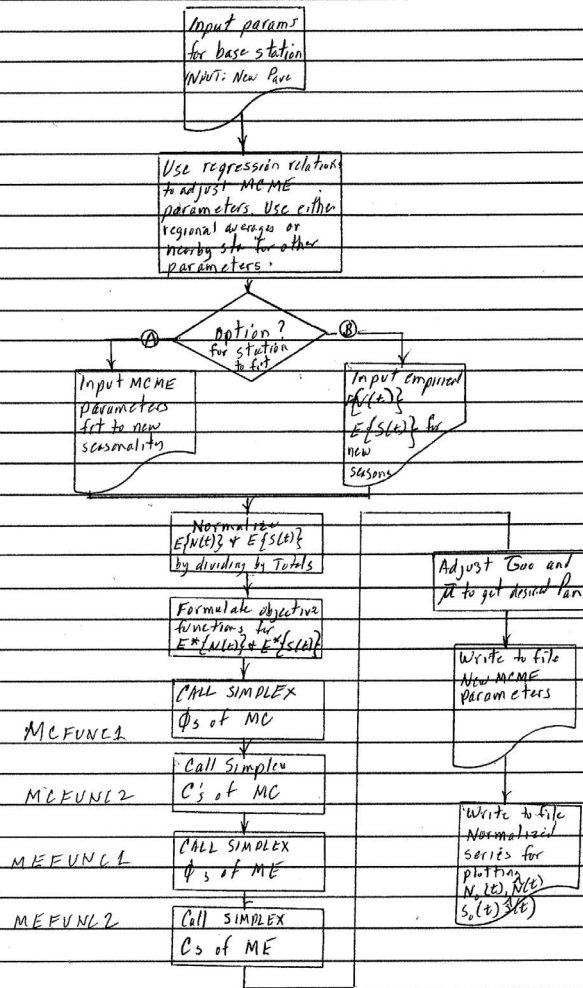 Input params
for base station
INPUT: New Pave
Use regression relations
to adjust MCME
parameters. Use either
regional averages or
nearby sta for other
parameters.
Option?
for station
to fit
A
B
Input MCME
parameters
fit to new
seasonality
Input empirical
E{N(t)}
E{S(t)} for
new
seasons
Normalize
E{N(t)} & E{S(t)}
by dividing by Totals
Formulate objective
functions for
E*{N(t)} & E*{S(t)}
MCFUNC1
CALL SIMPLEX
ϕs of MC
MCFUNC2
Call Simplex
C's of MC
MEFUNC1
CALL SIMPLEX
ϕs of ME
MEFUNC2
Call SIMPLEX
Cs of ME
Adjust and
to get desired Pan
Write to file
New MCME
Parameters
Write to file
Normalized
series for
plotting
N₀(t), N̂(t)
S₀(t) Ŝ(t)